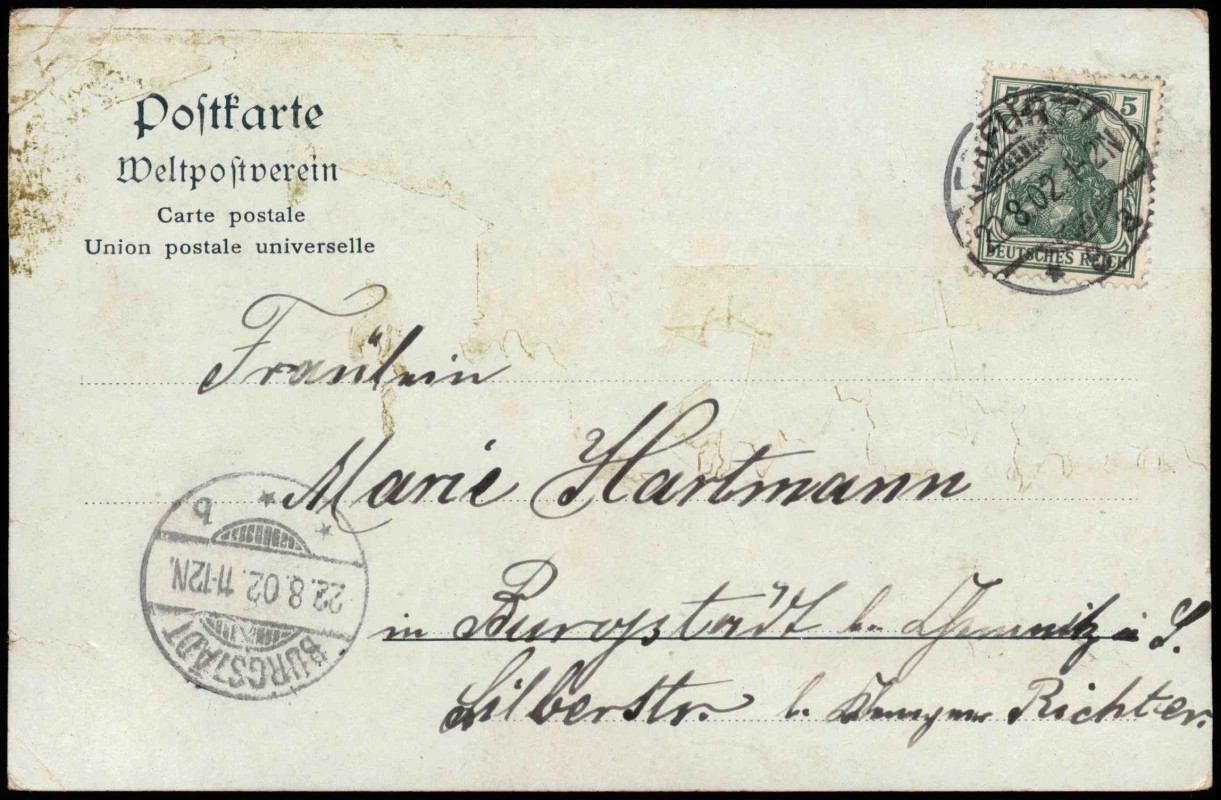 Poſtkarte
Weltpoſtverein
Carte postale
Union postale universelle
5 5
ERFURT
8.02. 1-2N
DEUTSCHES REICH
Fräulein
Marie Hartmann
in Burgstädt b. Chemnitz i. S.
Silberstr. b. Richter.
b
22.8.02. 11-12N.
BURGSTÄDT